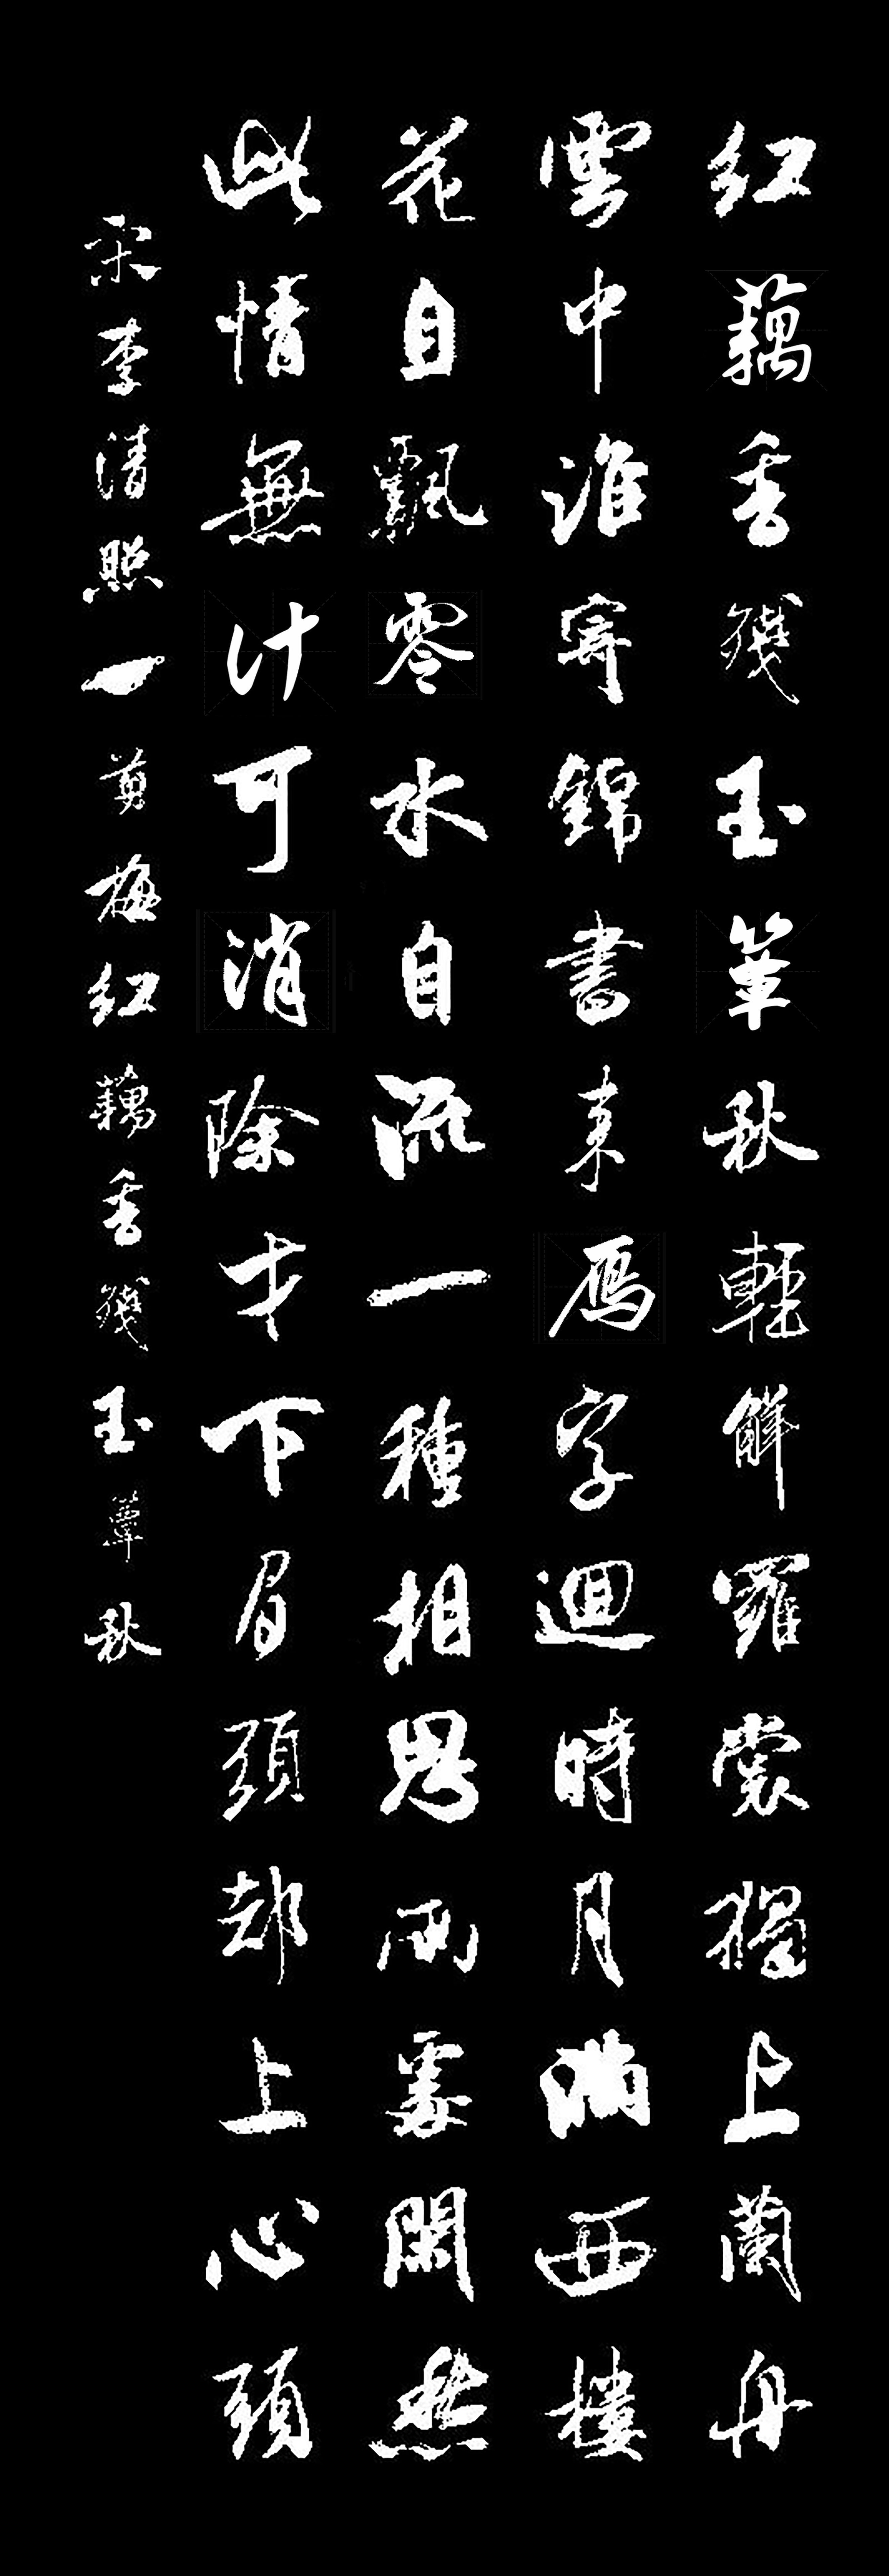 红藕香残玉簟秋輕解羅裳獨上蘭舟
雲中誰寄錦書來鴈字迴時月滿西樓
花自飄零水自流一種相思兩處閑愁
此情無計可消除才下眉頭却上心頭
宋李清照一剪梅红藕香残玉簟秋